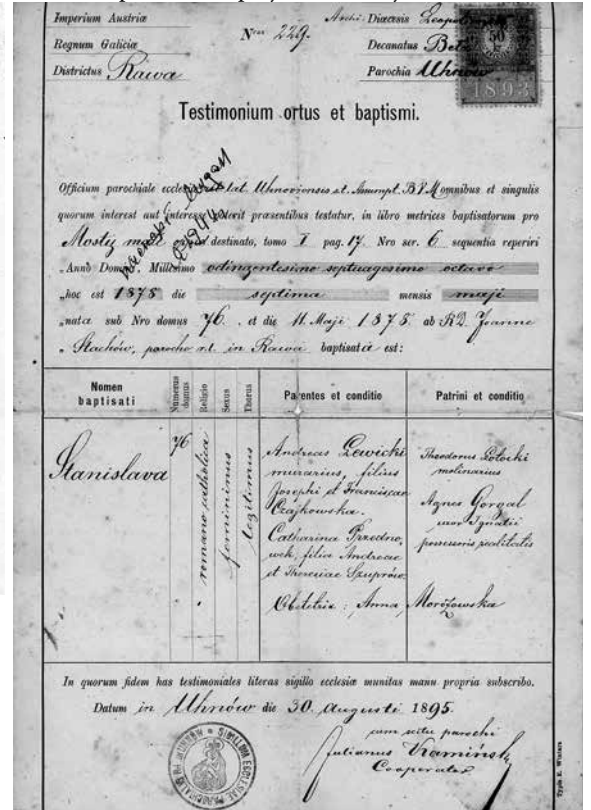 Imperium Austriæ
Regnum Galiciæ
Districtus Rawa
Nrus 229.
Archi Diœcesis Leopoliensis
Decanatus Bełz
Parochia Uhnów
50
1893
Testimonium ortus et baptismi.
Officium parochiale ecclesiæ lat. Uhnoviensis s.t. Assumpt. B V M omnibus et singulis
quorum interest aut interesse poterit præsentibus testatur, in libro metrices baptisatorum pro
Mosty małe destinato, tomo I pag. 17. Nro ser. 6 sequentia reperiri
„Anno Domini Millesimo octingentesimo septuagesimo octavo
„hoc est 1878 die septima mensis maji
„nata sub Nro domus 76. et die 11. Maji 1878 ab RD. Joanne
„Stachów, parocho r.l. in Rawa baptisata est:
Nomen baptisati
Numerus domus
Religio
Sexus
Thorus
Parentes et conditio
Patrini et conditio
Stanislava
76
romano catholica
femininus
legitimus
Andreas Lewicki
murarius, filius
Josephi et Franciscae
Czajkowska.
Catharina Przedno,
wek, filia Andreae
et Theresiae Szuprów
Obstetrix: Anna Morozowska
Theodorus Łotocki
molinarius
Agnes Gorgal
uxor Ignatii
possessoris realitatis
In quorum fidem has testimoniales literas sigillo ecclesiæ munitas manu propria subscribo.
Datum in Uhnów die 30. Augusti 1895.
cum scitu parochi
Julianus Kamiński
Cooperator
SIGILLUM ECCLESIAE PAROCHIALIS
Typis E. Winiarz